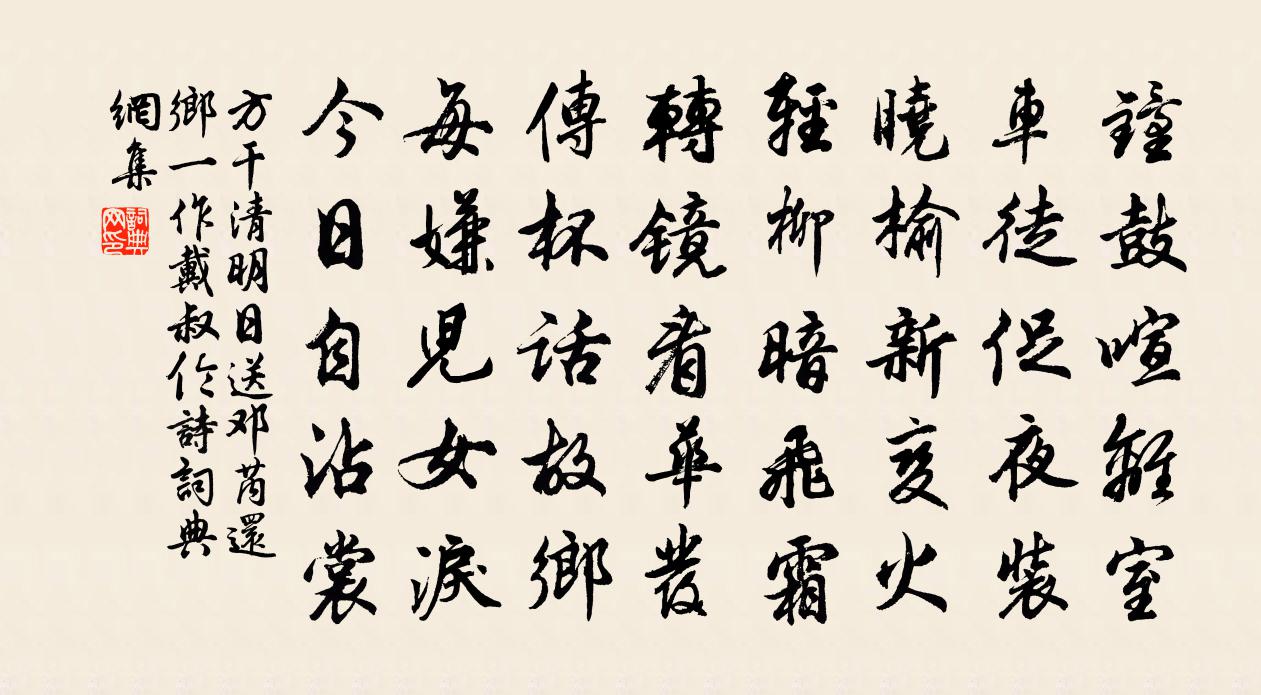 鐘鼓喧離室
車徒促夜装
曉榆新变火
輕柳暗飛霜
轉鏡看華發
傳杯話故鄉
每嫌児女淚
今日自沾裳
方干清明日送邓芮還
鄉一作戴叔伦詩詞典
網集
詞典
网印